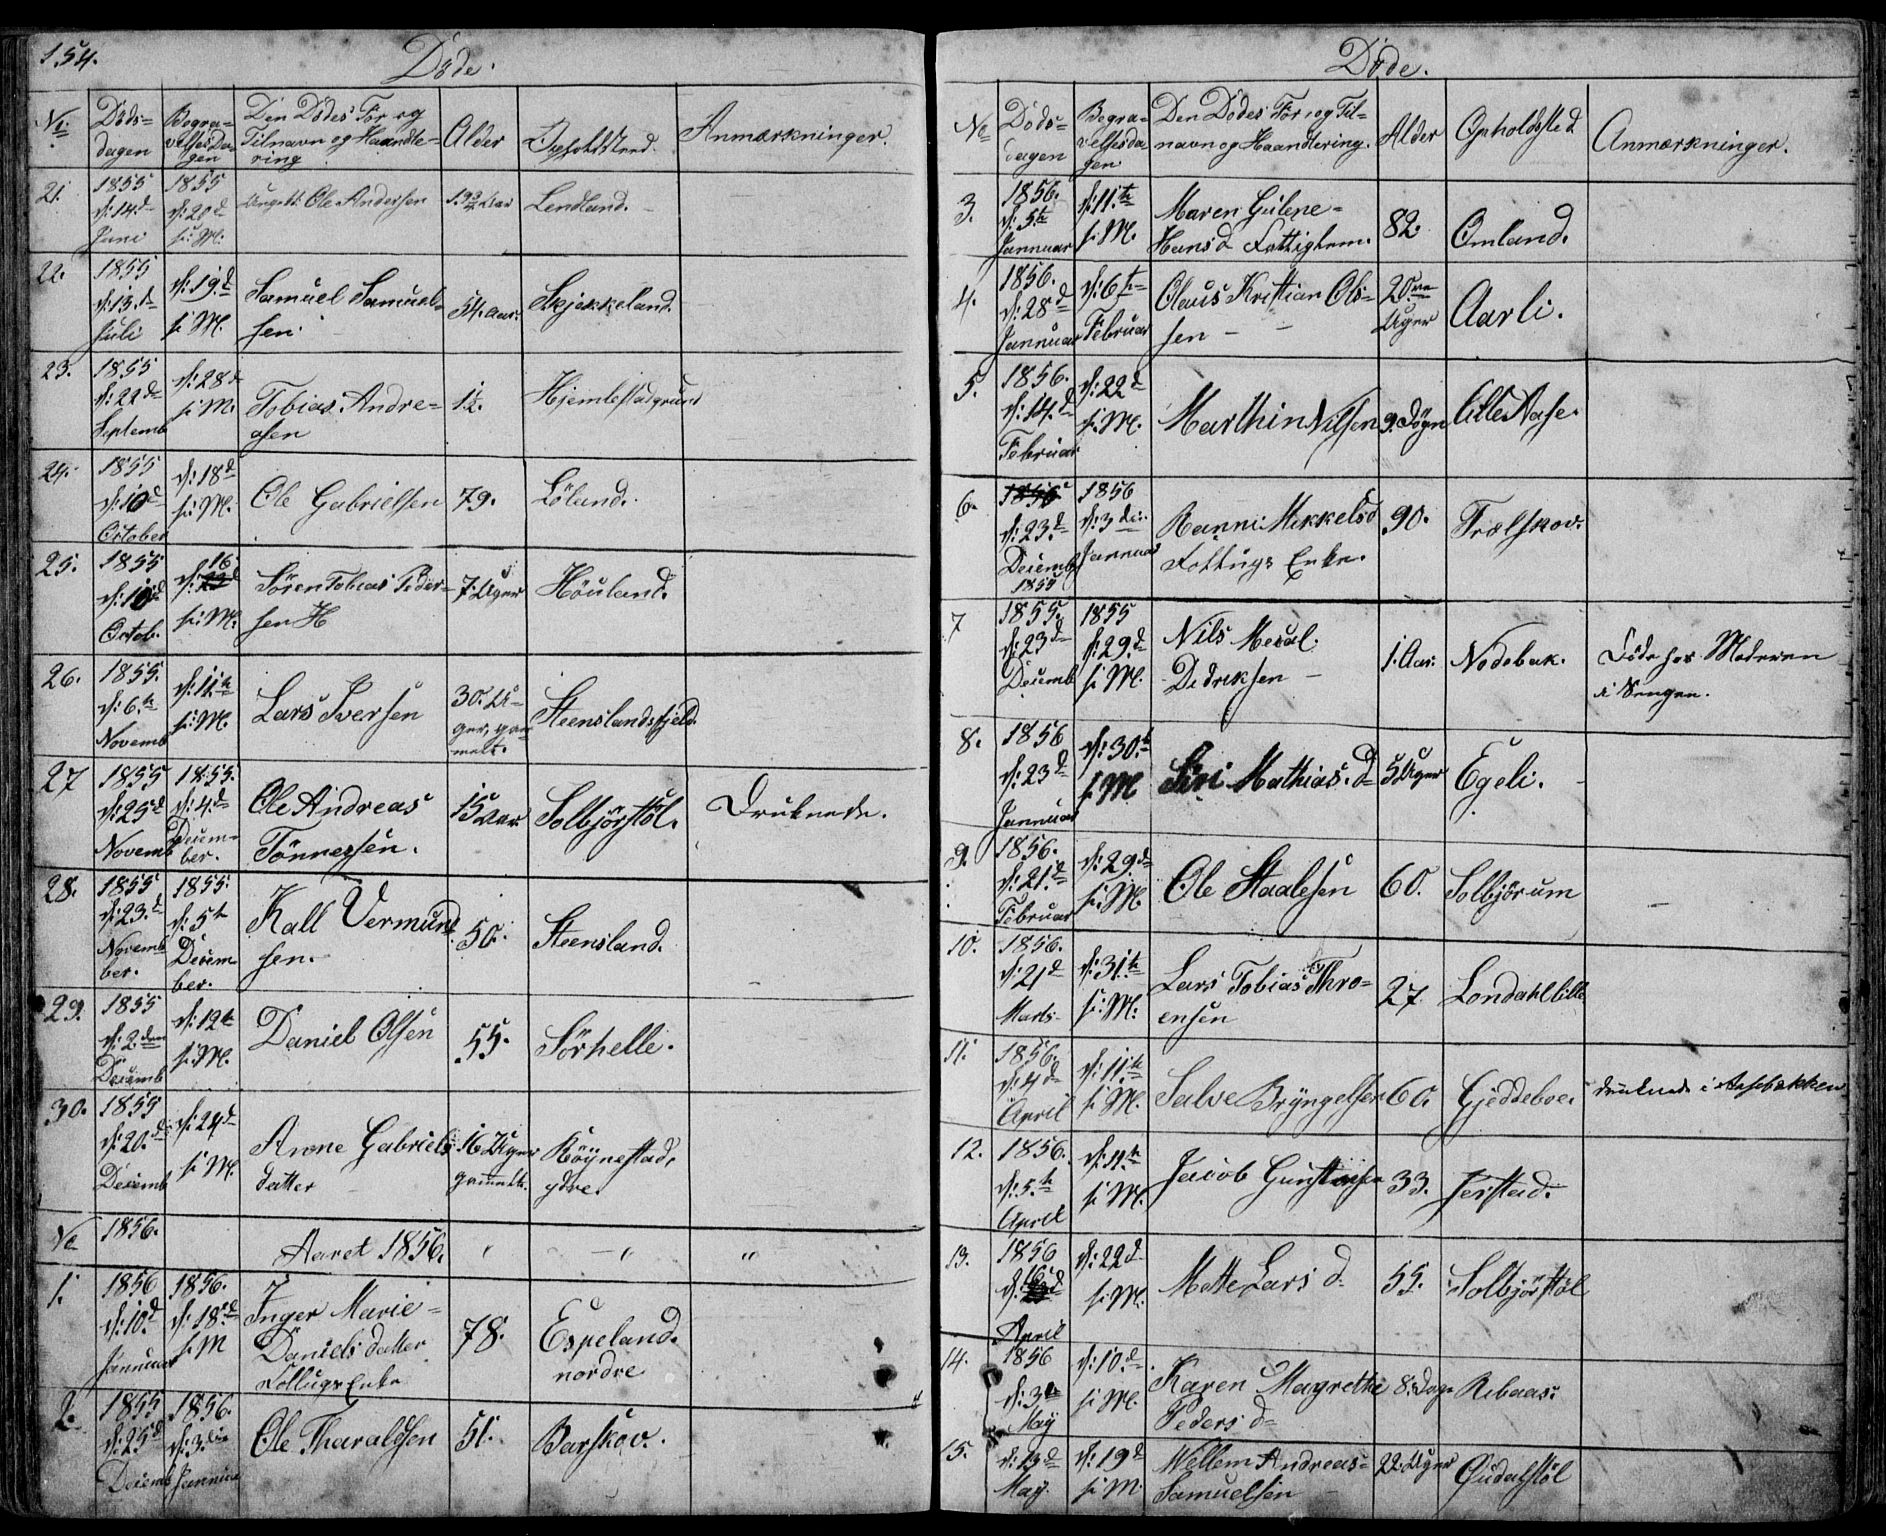 154.
Døde.
No.
Døds-
dagen
Begra-
velses Da-
gen
Den Dødes For og
Tilnavn og Haandte-
ring
Alder
Opholdsted.
Anmærkninger.
21.
1855
d: 14.d
Juni
1855
d: 20d
s: M.
Ole Andersen
Lendland.
22.
1855
d: 13.d
Juli
d: 19.d
s: M.
Samuel Samuel-
sen.
54. aar.
Skjekkeland.
23.
1855
d: 22d
Septemb
d: 28d
s: M.
Tobias Andre-
asen
1½.
Hjemlestadgrund
24.
1855
d: 10d
October
d: 18d
s: M.
Ole Gabrielsen
79.
Löland.
25.
1855
d: 10d
Octob.
16
d:
s: M.
Sören Tobias Peder-
sen H
7. Uger
Höuland.
26.
1855.
d: 6.te
Novemb
d: 11.te
s: M.
Lars Iversen
30. U-
ger, gam-
melt.
Steenslandsfjeld.
27
1855
d: 25d
Novemb
1855.
d: 4.d
Decem-
ber.
Ole Andreas
Tönnessen.
15 Aar
Solbjörstöl.
Druknede.
28.
1855
d: 23.d
Novem-
ber.
1855.
d: 5te
Decem-
ber.
Kall Vermund
sen.
50.
Steensland.
29.
1855
d: 2.den
Decemb
d: 12te
s: M.
Daniel Olsen
55.
Sörhelle.
30.
1855
d: 20.d
Decemb
d: 24d
s: M.
Anne Gabriels
datter
16 Uger
gammelt.
Röynestad,
ydre.
No
1856.
Aaret 1856.
"
— "
"
1.
1856
d: 10.d
Januar
1856.
d: 18d
s: M
Inger Marie-
Daniels datter
Enke
78.
Espeland.
nordre
2.
1855
d: 25d
Decemb
1856.
d: 3.die
Januar
Ole Tharaldsen
51.
Barskov.
Døde.
No
Døds-
dagen
Begra-
velsesda
gen
Den Dødes For og Til-
navn og Haandtering.
Alder
Opholdsted
Anmærkninger.
3.
1856.
d: 5te
Januar
d: 11.te
s: M.
Maren Gulene-
Hans d Fattiglem.
82.
Omland.
4.
1856.
d: 28d
Januar
d: 6te
Februar
Olaus Kristian Ols-
sen
20
Uger
Aarli.
5.
1856.
d: 14.d
Februar
d: 22d
s: M.
Marthin Nilsen
9. Dögn
lille Aase.
6.
d: 23.d
Decemb
1855
1856
d: 3 die
Januar
Ranni Mikkelsd
Enke.
90.
Trælskov.
7
1855.
d: 23d
Decemb
1855
d: 29.d
s: M.
Nils
Didriksen
1. Aar.
Nodebak.
Döde hos Moderen
i Sengen.
8.
1856
d: 23d
Januar
d: 30.te
s: M
Siri Mathias. d
5 Uger
Egeli.
9.
1856.
d: 21.d
Februar
d: 29.d
s: M.
Ole Staalesen
60.
Solbjör um
10.
1856.
d: 21d
Marts
d: 31.te
s: M:
Lars Tobias Thro-
ensen
27.
Londahl lille
11.
1856.
d: 4d
April
d: 11.te
s: M.
Salve Bryngelsen
60.
Gjeddeboe.
druknede i Aasebækken
12.
1856.
d: 5.te
April
d: 11.te
s: M.
Jacob
33.
Jerstad.
13.
1856
16
d:
April
d: 22d
s: M.
Mette Lars d.
55.
Solbjörstöl
14.
1856
d: 3
May
d: 10.d
s: M.
Karen Magrethe
Peders d
8. Dage
Ribaas.
15.
d: 13d
May.
d: 19d
s: M.
Wellem Andreas-
Samuelsen
22. Uger
Qudalstöl